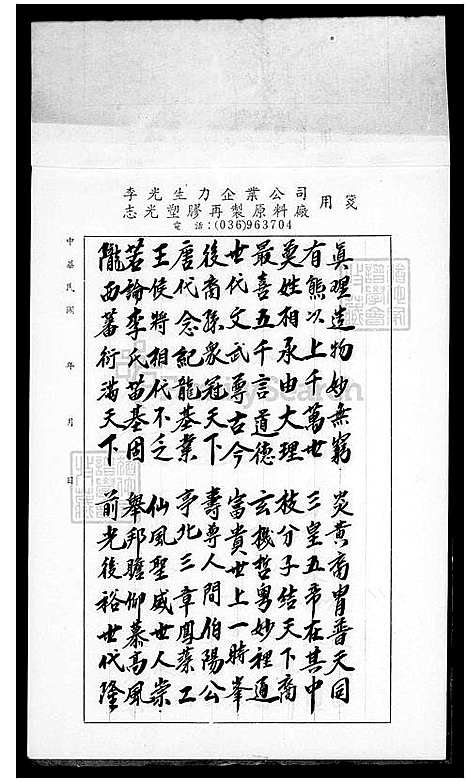 李光生力企業公司
志光塑膠再製原料廠
用箋
電話:(036)963704
中華民國 年 月 日
真理造物妙無窮 炎黃裔胄普天同
有熊以上千萬世 三皇五帝在其中
更姓相承由大理 枝分子結天下裔
最喜五千言道德 玄機哲粵妙裡通
世代文武尊古今 富貴世上一時峯
後裔孫衆冠天下 壽尊人間伯陽公
唐代念紀龍基業 亭北三章鳳藻工
王侯將相代不乏 仙風聖威世人崇
若論李氏苗基固 舉邦瞻仰慕高風
隴西蕃衍滿天下 前光後裕世代隆
FamilySearch